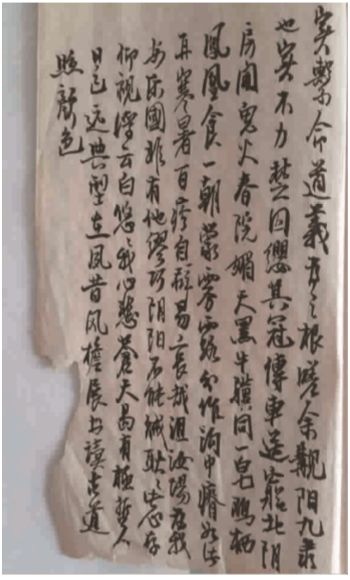 實繫命道義為之根嗟余覯陽九隸
也實不力楚囚纓其冠傳車送窮北阴
房闃鬼火春院媚天黑牛驥同一皂鷄栖
鳳凰食一朝蒙雾露分作溝中瘠如此
再寒暑百疹自辟易哀哉沮洳場為我
安乐國非有他繆巧阴阳不能賊耿耿心存
仰視浮云白悠悠我心悲蒼天曷有極哲人
日已远典型在夙昔风檐展书讀古道
照顏色